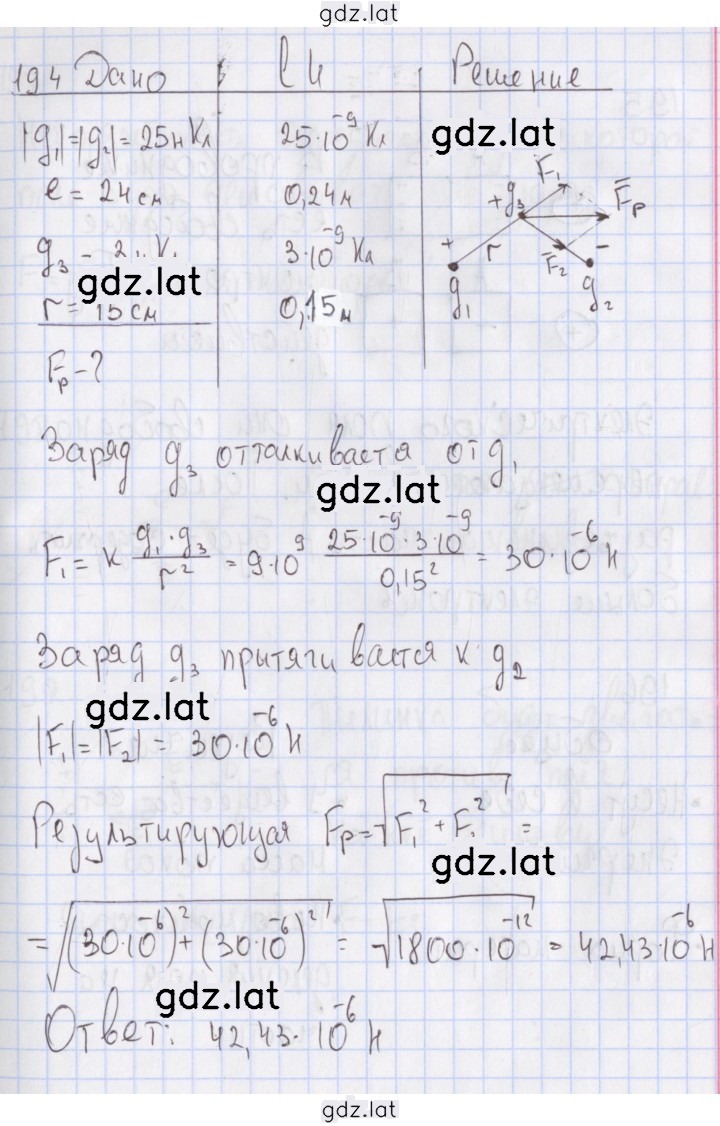 gdz.lat
194 Дано
СИ
Решение
|q₁|=|q₂|=25нКл
25·10⁻⁹ Кл
gdz.lat
ℓ = 24 см
0,24м
q₃
3·10⁻⁹ Кл
gdz.lat
r = 15 см
0,15м
Fр - ?
+q₃ F₁ F̄р
+ r F̄₂ -
q₁ q₂
Заряд q₃ отталкивается от q₁
gdz.lat
F₁ = k q₁·q₃/r² = 9·10⁹ 25·10⁻⁹·3·10⁻⁹/0,15² = 30·10⁻⁶ Н
Заряд q₃ притягивается к q₂
gdz.lat
|F₁|=|F₂| = 30·10⁻⁶ Н
Результирующая Fр=√F₁²+F₁² =
gdz.lat
=√(30·10⁻⁶)²+(30·10⁻⁶)² = √1800·10⁻¹² = 42,43·10⁻⁶ Н
gdz.lat
Ответ: 42,43·10⁻⁶ Н
gdz.lat